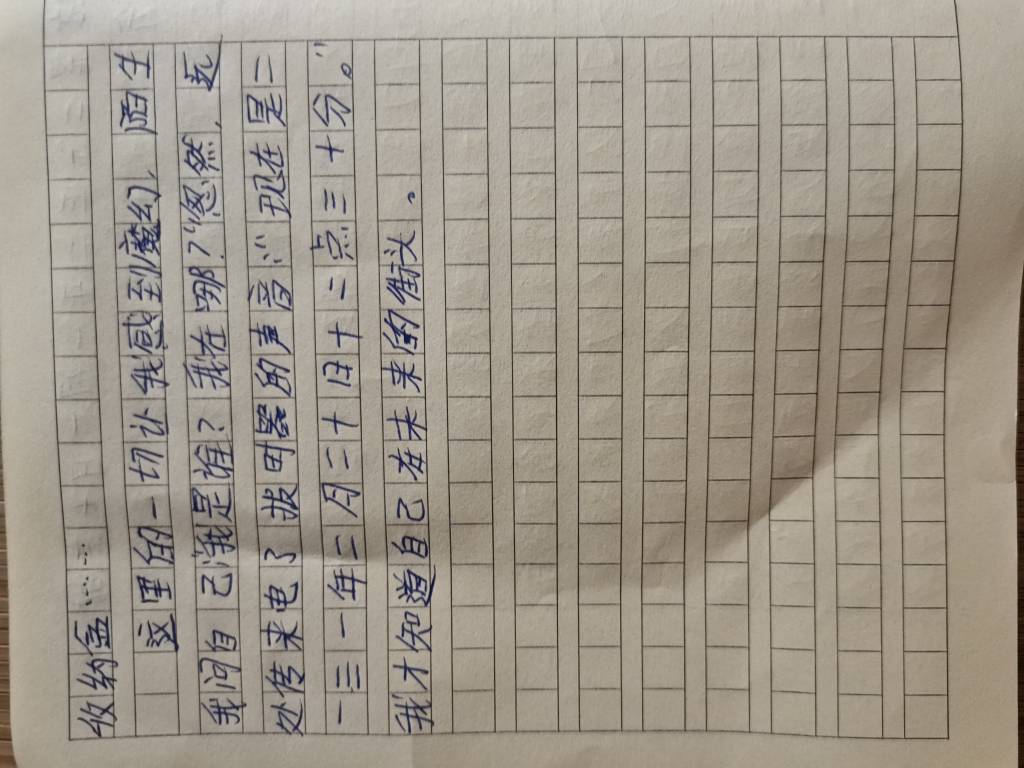 收纳盒……
这里的一切让我感到魔幻，陌生
我问自己“我是谁？我在哪？”忽然，远
处传来电了报时器的声音：“现在是二
一三一年二月二十日十二点三十分。”
我才知道自己在未来的街头。